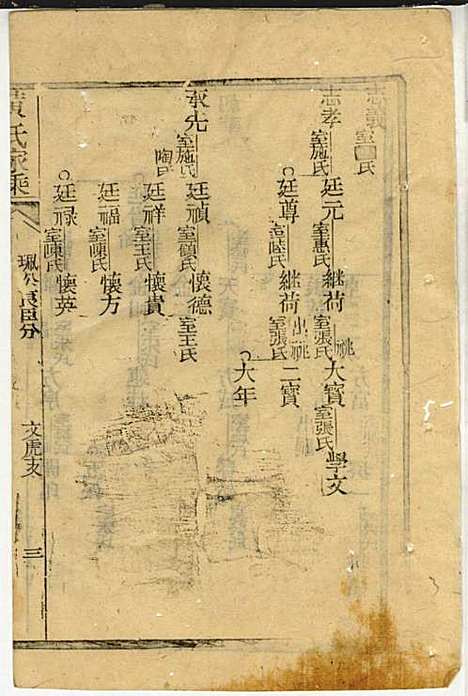 志義 室□氏
志孝 室施氏 廷元 室惠氏 継荷 室張氏 祧 大寶 室張氏 學文
廷尊 室陸氏 継荷 出祧 室張氏 二寶
大年
承先 室施氏 廷禎 室顧氏 懷德 室王氏
廷祥 室王氏 懷貴
廷福 室陳氏 懷方
廷禄 室陳氏 懷英
黃氏家乘
珮公長臣分
文虎支
三